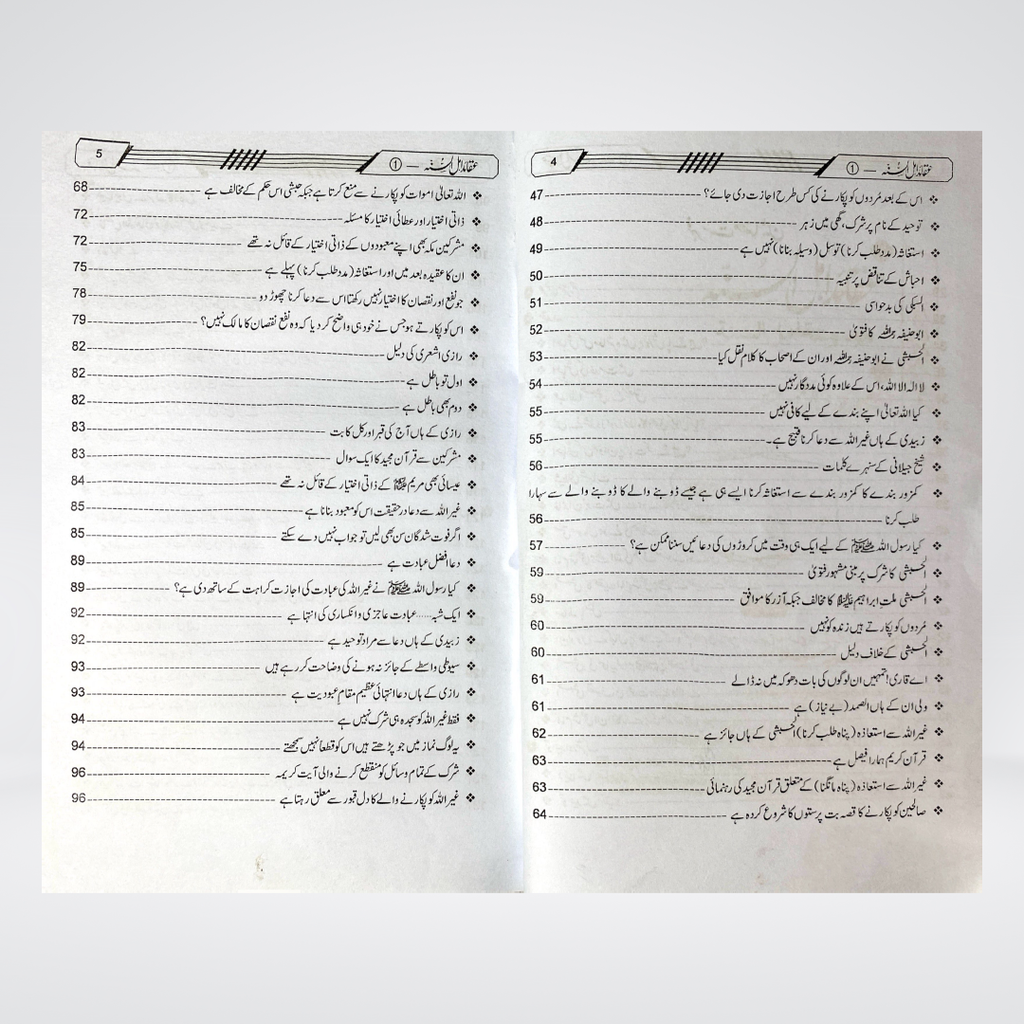 4 عقائد اہل السنہ — ①
❖ اس کے بعد مُردوں کو پکارنے کی کس طرح اجازت دی جائے؟ 47
❖ توحید کے نام پر شرک، گھی میں زہر 48
❖ استغاثہ (مدد طلب کرنا) توسل (وسیلہ بنانا) نہیں ہے 49
❖ احباش کے تناقض پر تنبیہ 50
❖ السبکی کی بدحواسی 51
❖ ابوحنیفہ رحمہ اللہ کا فتویٰ 52
❖ الحبشی نے ابوحنیفہ رحمہ اللہ اور ان کے اصحاب کا کلام نقل کیا 53
❖ لا الہ الا اللہ، اس کے علاوہ کوئی مددگار نہیں 54
❖ کیا اللہ تعالیٰ اپنے بندے کے لیے کافی نہیں 55
❖ زبیدی کے ہاں غیر اللہ سے دعا کرنا قبیح ہے۔ 55
❖ شیخ جیلانی کے سنہرے کلمات 56
❖ کمزور بندے کا کمزور بندے سے استغاثہ کرنا ایسے ہی ہے جیسے ڈوبنے والے کا ڈوبنے والے سے سہارا
طلب کرنا 56
❖ کیا رسول اللہ ﷺ کے لیے ایک ہی وقت میں کروڑوں کی دعائیں سننا ممکن ہے؟ 57
❖ الحبشی کا شرک پر مبنی مشہور فتویٰ 59
❖ الحبشی ملت ابراہیم علیہ السلام کا مخالف جبکہ آزر کا موافق 59
❖ مُردوں کو پکارتے ہیں زندہ کو نہیں 60
❖ الحبشی کے خلاف دلیل 60
❖ اے قاری! تمہیں ان لوگوں کی بات دھوکہ میں نہ ڈالے 61
❖ ولی ان کے ہاں الصمد (بے نیاز) ہے 61
❖ غیر اللہ سے استعاذہ (پناہ طلب کرنا) الحبشی کے ہاں جائز ہے 62
❖ قرآن کریم ہمارا فیصل ہے 63
❖ غیر اللہ سے استعاذہ (پناہ مانگنا) کے متعلق قرآن مجید کی رہنمائی 63
❖ صالحین کو پکارنے کا قصہ بت پرستوں کا شروع کردہ ہے 64
5 عقائد اہل السنہ — ①
❖ اللہ تعالیٰ اموات کو پکارنے سے منع کرتا ہے جبکہ حبشی اس حکم کے مخالف ہے 68
❖ ذاتی اختیار اور عطائی اختیار کا مسئلہ 72
❖ مشرکین مکہ بھی اپنے معبودوں کے ذاتی اختیار کے قائل نہ تھے 72
❖ ان کا عقیدہ بعد میں اور استغاثہ (مدد طلب کرنا) پہلے ہے 75
❖ جو نفع اور نقصان کا اختیار نہیں رکھتا اس سے دعا کرنا چھوڑ دو 78
❖ اس کو پکارتے ہو جس نے خود ہی واضح کر دیا کہ وہ نفع نقصان کا مالک نہیں؟ 79
❖ رازی اشعری کی دلیل 82
❖ اول تو باطل ہے 82
❖ دوم بھی باطل ہے 82
❖ رازی کے ہاں آج کی قبر اور کل کا بت 83
❖ مشرکین سے قرآن مجید کا ایک سوال 83
❖ عیسائی بھی مریم علیہا السلام کے ذاتی اختیار کے قائل نہ تھے 84
❖ غیر اللہ سے دعا در حقیقت اس کو معبود بنانا ہے 85
❖ اگر فوت شدگان سن بھی لیں تو جواب نہیں دے سکتے 85
❖ دعا افضل عبادت ہے 89
❖ کیا رسول اللہ ﷺ نے غیر اللہ کی عبادت کی اجازت کراہت کے ساتھ دی ہے؟ 89
❖ ایک شبہ..... عبادت عاجزی و انکساری کی انتہا ہے 92
❖ زبیدی کے ہاں دعا سے مراد توحید ہے 92
❖ سیوطی واسطے کے جائز نہ ہونے کی وضاحت کر رہے ہیں 93
❖ رازی کے ہاں دعا انتہائی عظیم مقامِ عبودیت ہے 93
❖ فقط غیر اللہ کو سجدہ ہی شرک نہیں ہے 94
❖ یہ لوگ نماز میں جو پڑھتے ہیں اس کو قطعاً نہیں سمجھتے 94
❖ شرک کے تمام وسائل کو منقطع کرنے والی آیت کریمہ 96
❖ غیر اللہ کو پکارنے والے کا دل قبور سے معلق رہتا ہے 96